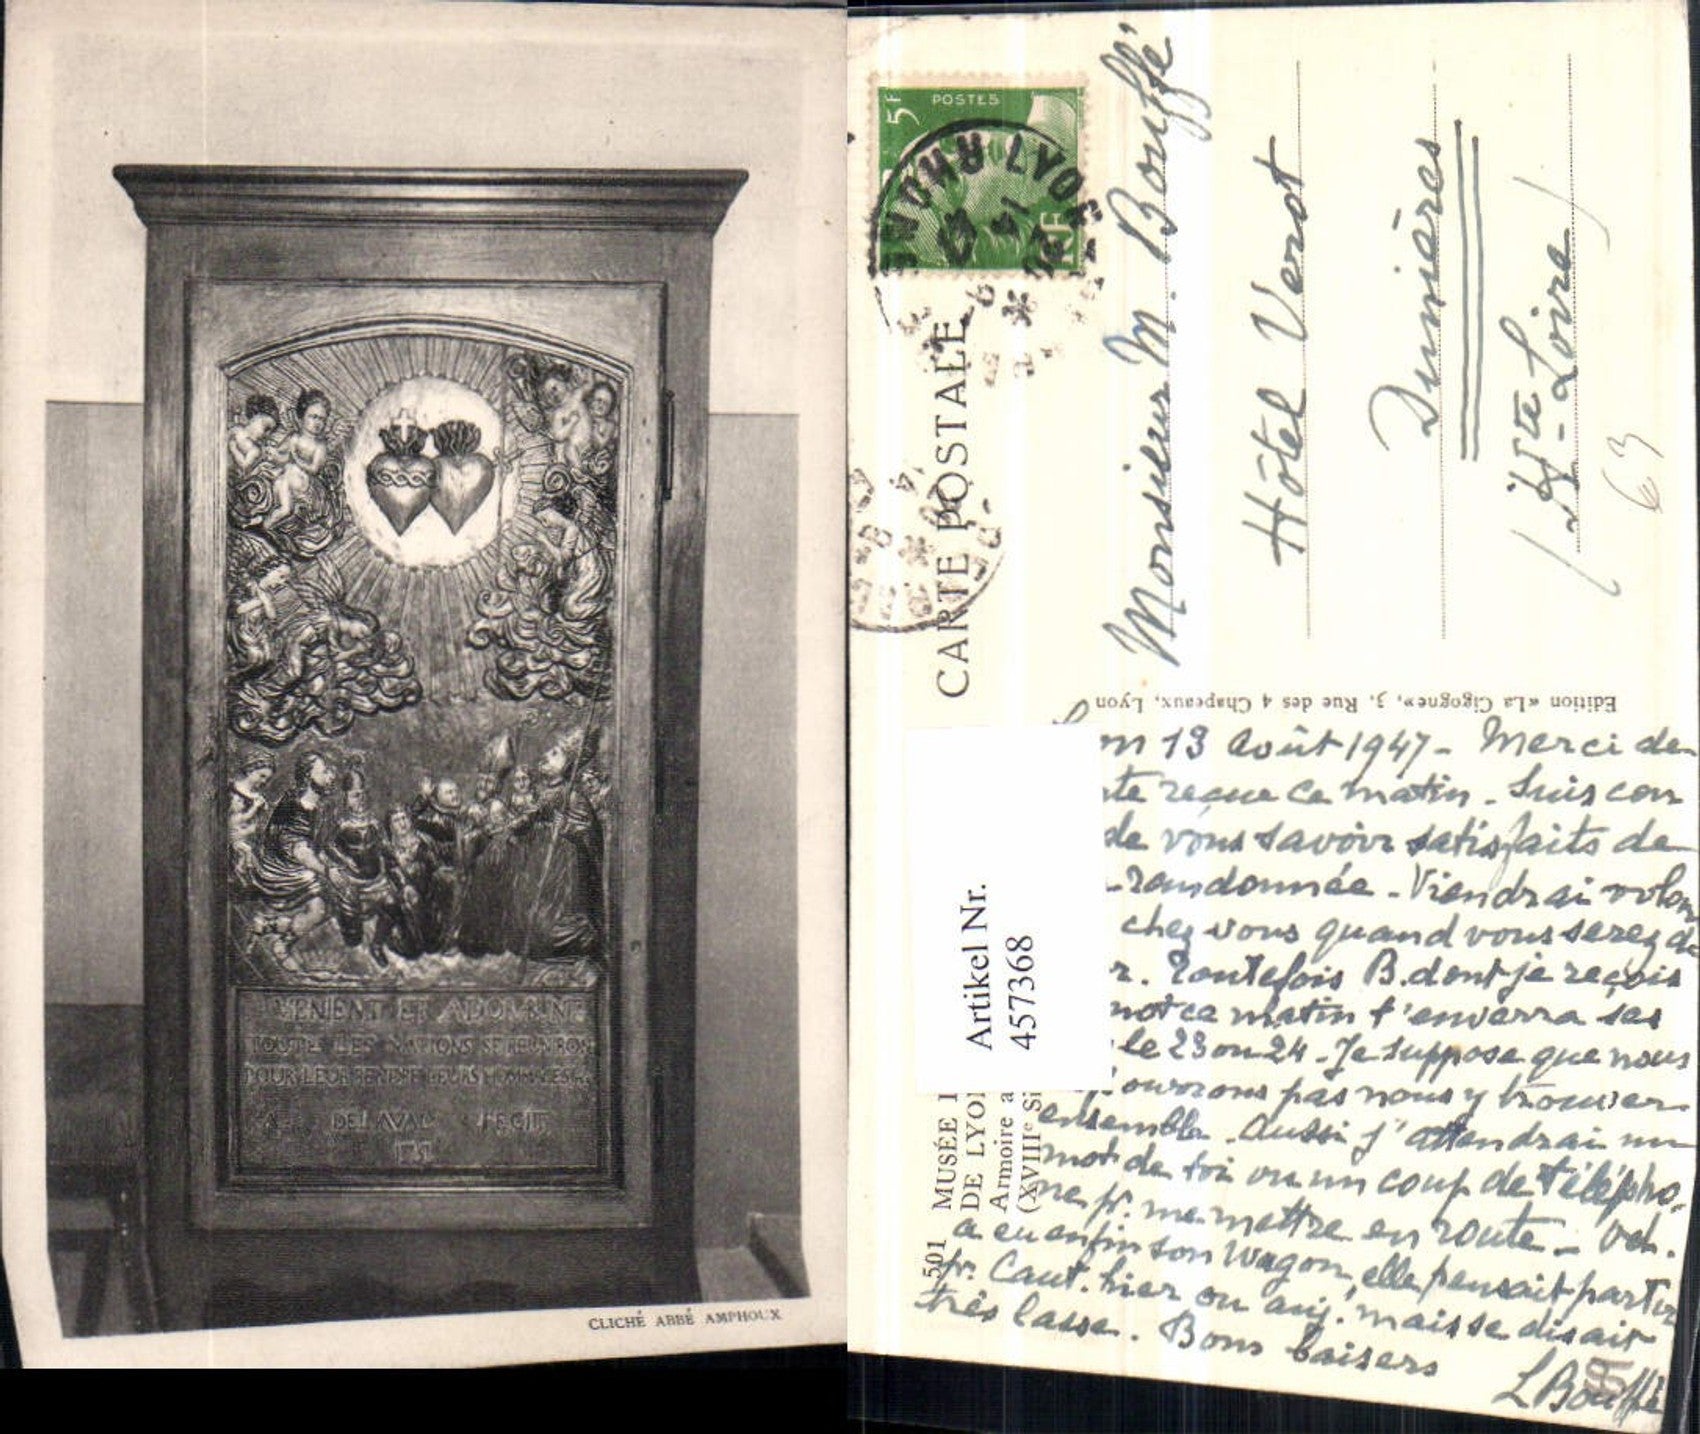 VENIENT ET ADORENT
TOUTES LES NATIONS SE REUNIRON
POUR LEUR RENDRE LEURS HOMMAGES
DELAVAL FECIT
175
CLICHÉ ABBÉ AMPHOUX
POSTES
5f
RF
LYON RHONE
CARTE POSTALE
Monsieur M. Bouffé
Hôtel Verot
Dunières
(Hte-Loire)
63
Edition «La Cigogne», 3, Rue des 4 Chapeaux, Lyon
Artikel Nr.
457368
501 MUSÉE
DE LYO
Armoire a
(XVIIIe Si
on 13 Août 1947 - Merci de
te reçue ce matin. Suis con
de vous savoir satisfaits de
randonnée - Viendrai volon
chez vous quand vous serez de
r. Toutefois B. dont je reçois
mot ce matin t'enverra ses
le 23 ou 24 - Je suppose que nous
ourrons pas nous y trouver
ensemble. Aussi j'attendrai un
mot de toi ou un coup de télépho-
ne pr. me mettre en route -
a eu enfin son wagon, elle pensait partir
pr. Caut. hier ou auj. mais se disait
très lasse. Bons baisers
L Bouffé